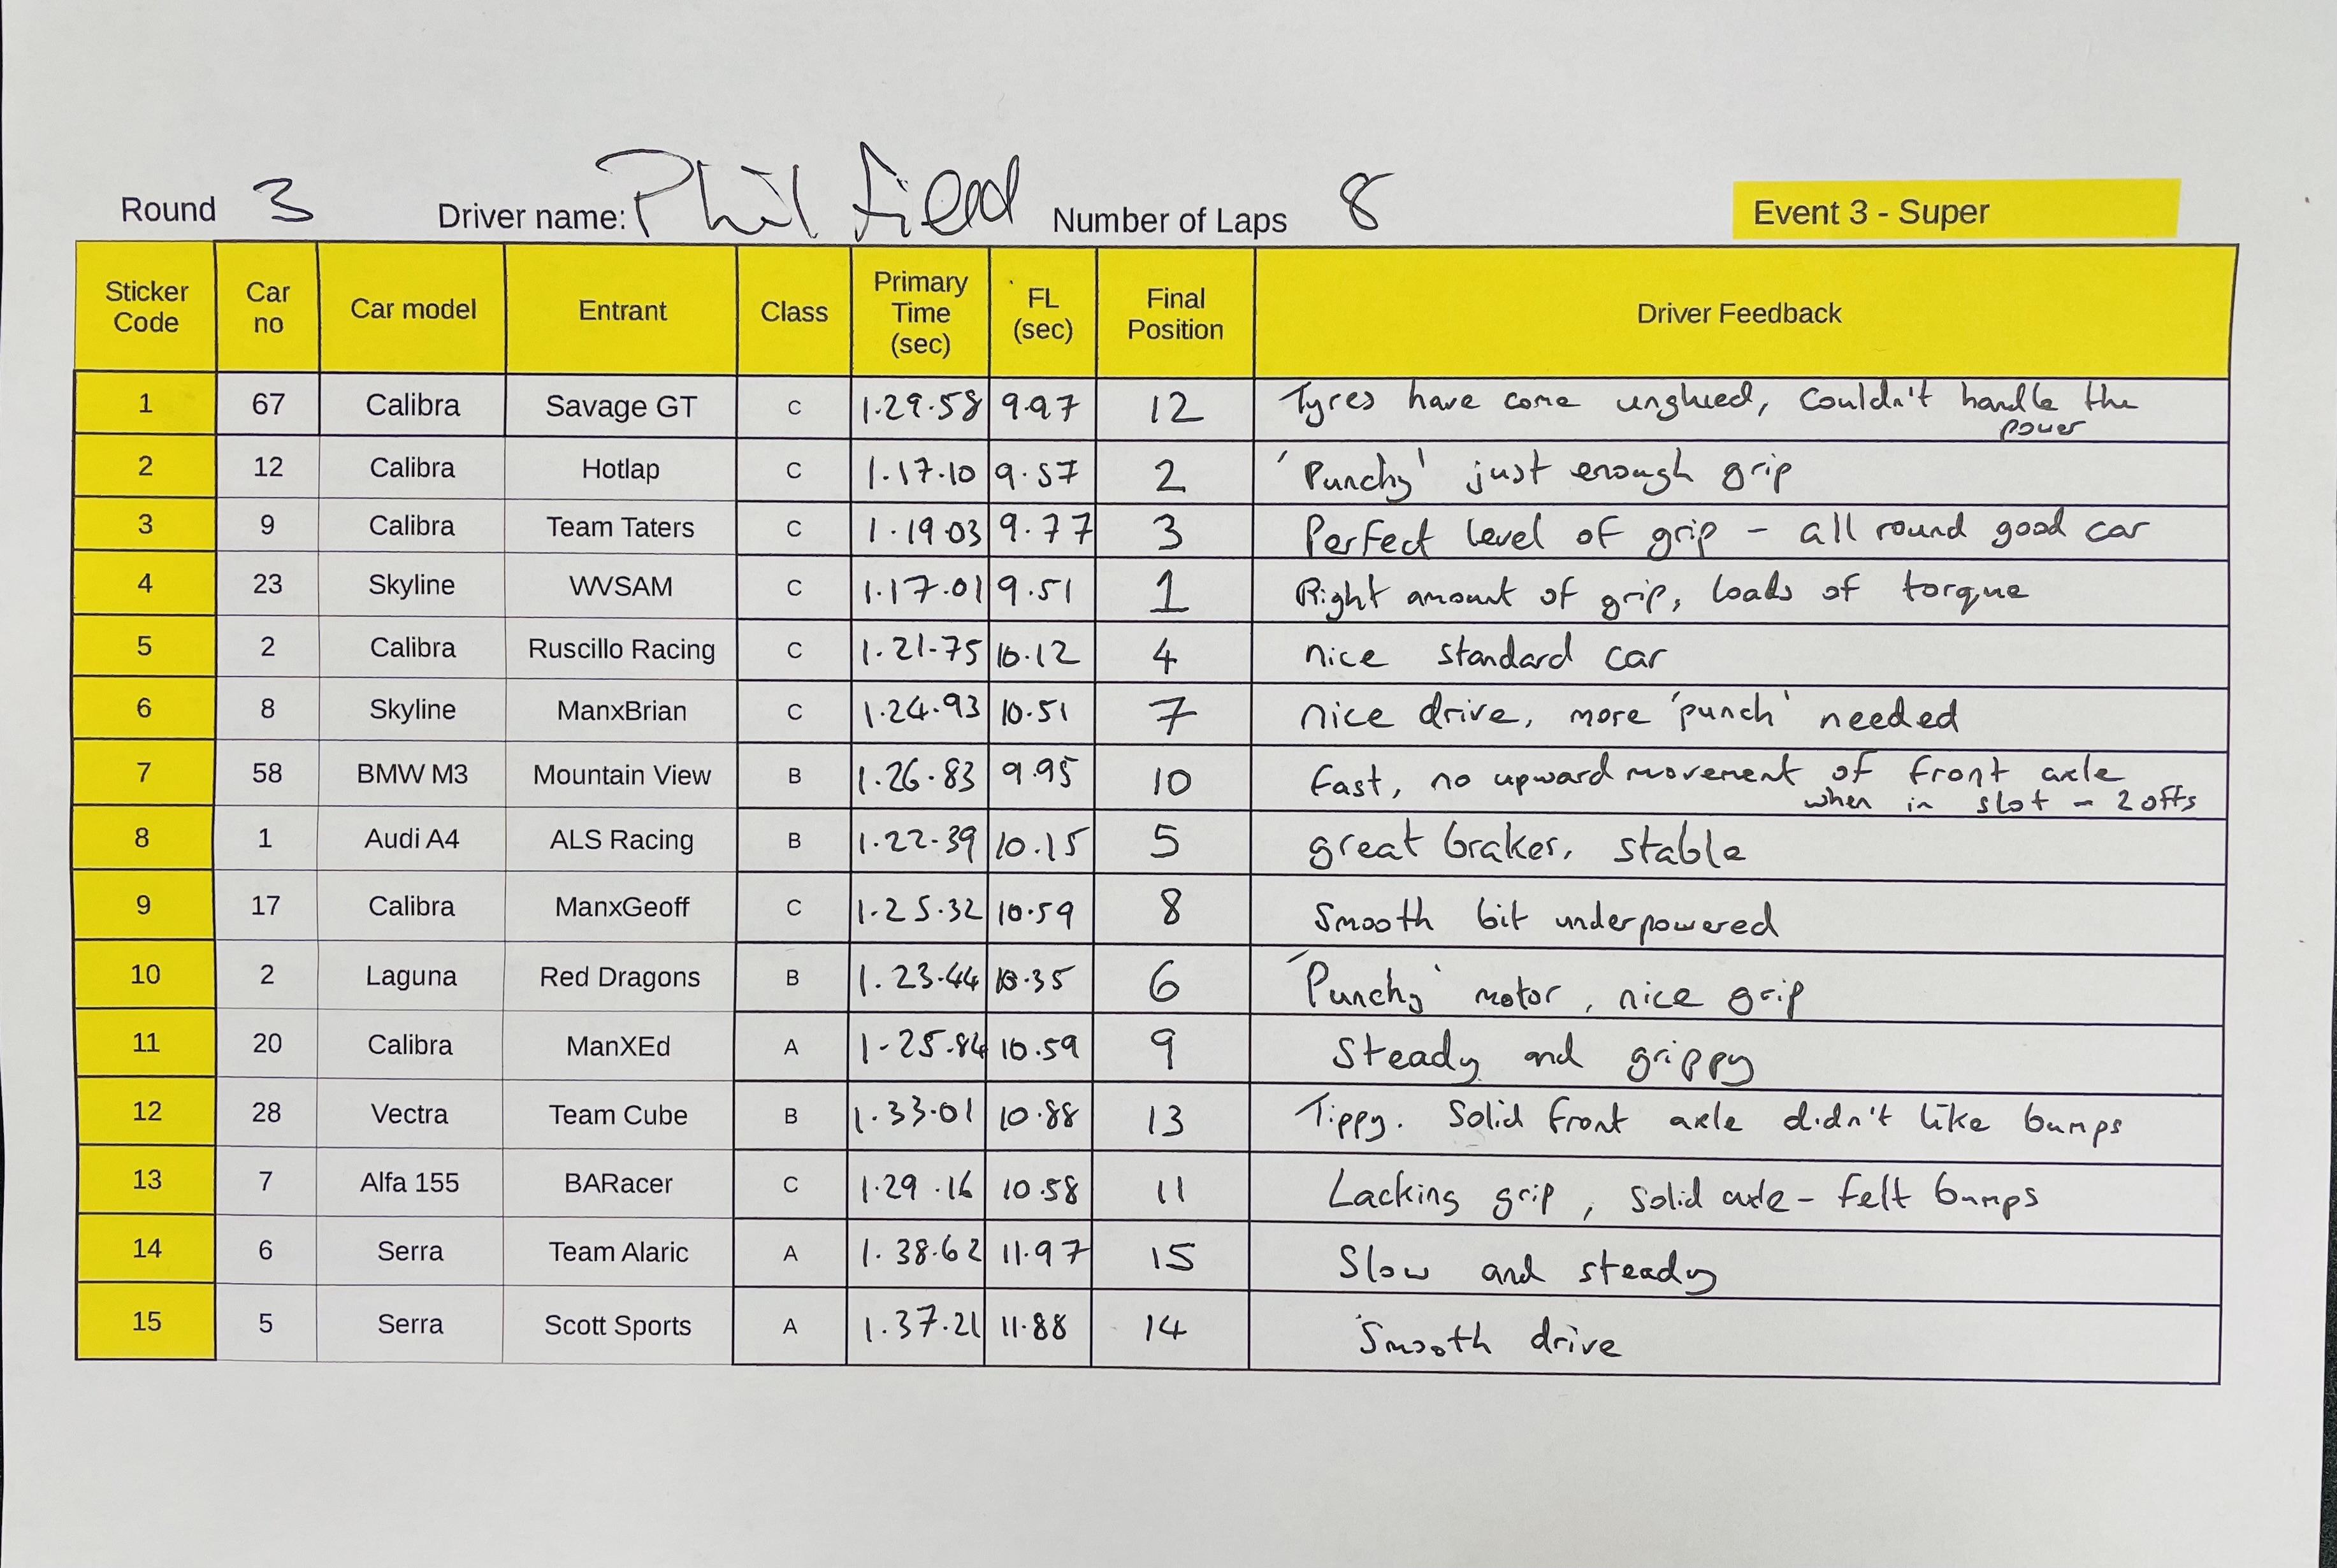 Round 3 Driver name: Phil Field Number of Laps 8 Event 3 - Super
Sticker Code Car no Car model Entrant Class Primary Time (sec) FL (sec) Final Position Driver Feedback
1 67 Calibra Savage GT C 1.29.58 9.97 12 Tyres have come unglued, couldn't handle the
power
2 12 Calibra Hotlap C 1.17.10 9.57 2 'Punchy' just enough grip
3 9 Calibra Team Taters C 1.19.03 9.77 3 Perfect level of grip - all round good car
4 23 Skyline WVSAM C 1.17.01 9.51 1 Right amount of grip, loads of torque
5 2 Calibra Ruscillo Racing C 1.21.75 10.12 4 nice standard car
6 8 Skyline ManxBrian C 1.24.93 10.51 7 nice drive, more 'punch' needed
7 58 BMW M3 Mountain View B 1.26.83 9.95 10 fast, no upward movement of front axle
when in slot - 2 offs
8 1 Audi A4 ALS Racing B 1.22.39 10.15 5 great brakes, stable
9 17 Calibra ManxGeoff C 1.25.32 10.59 8 Smooth bit underpowered
10 2 Laguna Red Dragons B 1.23.44 10.35 6 'Punchy' motor, nice grip
11 20 Calibra ManXEd A 1.25.84 10.59 9 Steady and grippy
12 28 Vectra Team Cube B 1.33.01 10.88 13 Tippy. Solid front axle didn't like bumps
13 7 Alfa 155 BARacer C 1.29.16 10.58 11 Lacking grip, solid axle - felt bumps
14 6 Serra Team Alaric A 1.38.62 11.97 15 Slow and steady
15 5 Serra Scott Sports A 1.37.21 11.88 14 Smooth drive